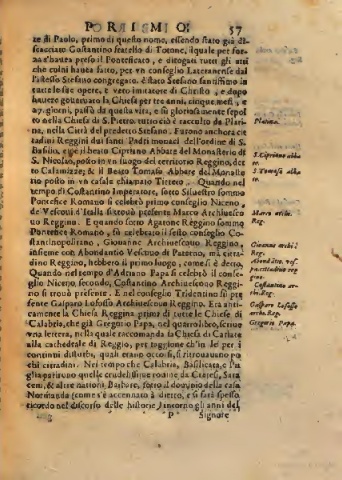 PORISMIO: 57
ze di Paolo, primo di questo nome, essendo stato già di-
scacciato Costantino fratello di Totone, ilquale per for-
za hauea preso il Ponteficato, e diroguti tutti gli atti
che colui hauea fatto, per vn conseglio Lateranense dal
l'istesso Stefano congregato. è stato Stefano santissimo in
tutte le sue opere, e vero imitatore di Christo, e dopo
hauere gouernato la Chiesa per tre anni, cinque mesi, e
27. giorni, passò da questa vita, e fù gloriosamente sepol
to nella Chiesa di S. Pietro. tutto ciò è raccolto da Plati-
na, nella Città del predetto Stefano. Furono anchora cit
tadini Reggini dui santi Padri monaci dell'ordine di S.
Basilio, e pe il beato Cipriano Abbate del Monasterio di
S. Nicolao, posto in vn luogo del territorio Reggino, det
to Calamizze; & il Beato Tomaso Abbate del Monaste
rio posto in vn casale chiamato Tirreto. Quando nel
tempo di Costantino Imperatore, sotto Siluestro sommo
Pontefice Romano si celebrò primo conseglio Niceno,
de Vescoui d'Italia si trouò presente Marco Archiuesco
uo Reggino. E quando sotto Agatone Reggino sommo
Pontefice Romano, fù celebrato il sesto conseglio Co-
stantinopolitano, Giouanne Archiuescouo Reggino,
insieme con Abondantio Vescouo di Paterno, ma citta-
dino Reggino, hebbero il primo luogo, come si è detto.
Quando nel tempo d'Adriano Papa si celebrò il conse-
glio Niceno secondo, Costantino Archiuescouo Reggi-
no si trouò presente. E nel conseglio Tridentino fù pre
sente Gasparo Lofasso Archiuescouo Reggino. Era anti-
camente la Chiesa Reggina prima di tutte le Chiese di
Calabria, che già Gregorio Papa, nel quarto libro, scriue
vna lettera, nella quale raccomanda la Chiesa di Cariate
alla cathedrale di Reggio, per raggione ch'in lei per i
continui disturbi, quali erano occorsi, si ritrouauano po
chi cittadini. Nei tempo che Calabria, Basilicata, e Pu
glia patirono quelle crudelissime rouine da Ciattesi, Sara
ceni, & altre nationi Barbare, sotto il dominio della casa
Normanda (come s'è accennato à dietro, e si farà spesso
ricordo nel discorso delle historie) intorno gli anni del
P Signore
Platina.
S. Cipriano abba
te.
S. Tomaso abba
te.
Marco archi.
Reg.
Giouanni archi.
Reg.
Abondātio, ves-
Costantino ar-
chi. Reg.
Gasparo Lofasso
arc. Reg.
Gregorio Papa.